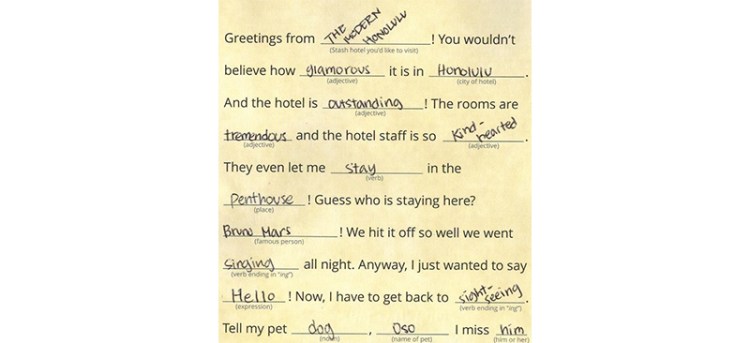 Greetings from THE MODERN HONOLULU ! You wouldn't
(Stash hotel you'd like to visit)
believe how glamorous it is in Honolulu .
(adjective) (city of hotel)
And the hotel is outstanding ! The rooms are
(adjective)
tremendous and the hotel staff is so kind-hearted .
(adjective) (adjective)
They even let me stay in the
(verb)
penthouse ! Guess who is staying here?
(place)
Bruno Mars ! We hit it off so well we went
(famous person)
singing all night. Anyway, I just wanted to say
(verb ending in "ing")
Hello ! Now, I have to get back to sight-seeing .
(expression) (verb ending in "ing")
Tell my pet dog , Oso I miss him
(noun) (name of pet) (him or her)